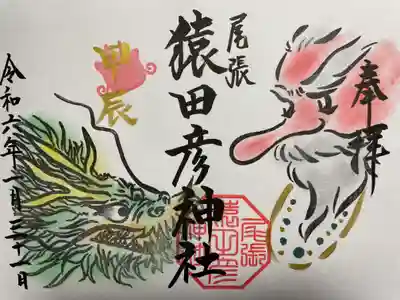 奉拝
尾張
猿田彦神社
甲辰
令和六年一月三十一日
尾張
猿田彦
神社